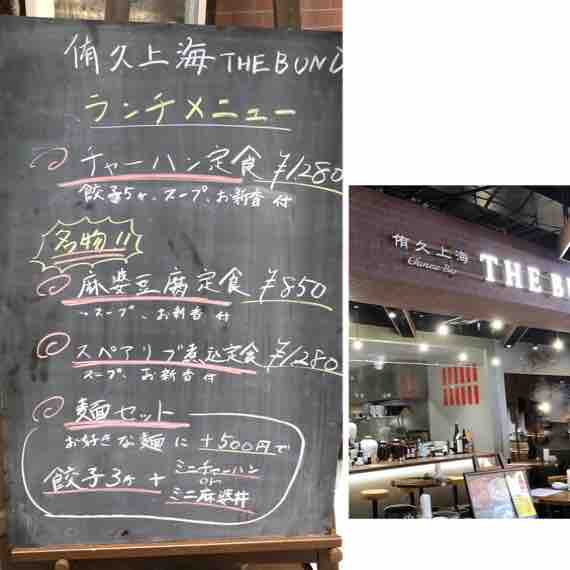 侑久上海 THE BUND
ランチメニュー
チャーハン定食 ¥1280
餃子5ヶ、スープ、お新香 付
名物!!
麻婆豆腐定食 ¥850
スープ、お新香 付
スペアリブ煮込定食 ¥1280
スープ、お新香 付
麺セット
お好きな麺に +500円で
餃子3ヶ + ミニチャーハン
or
ミニ麻婆丼
侑久上海
Chinese Bar
THE B